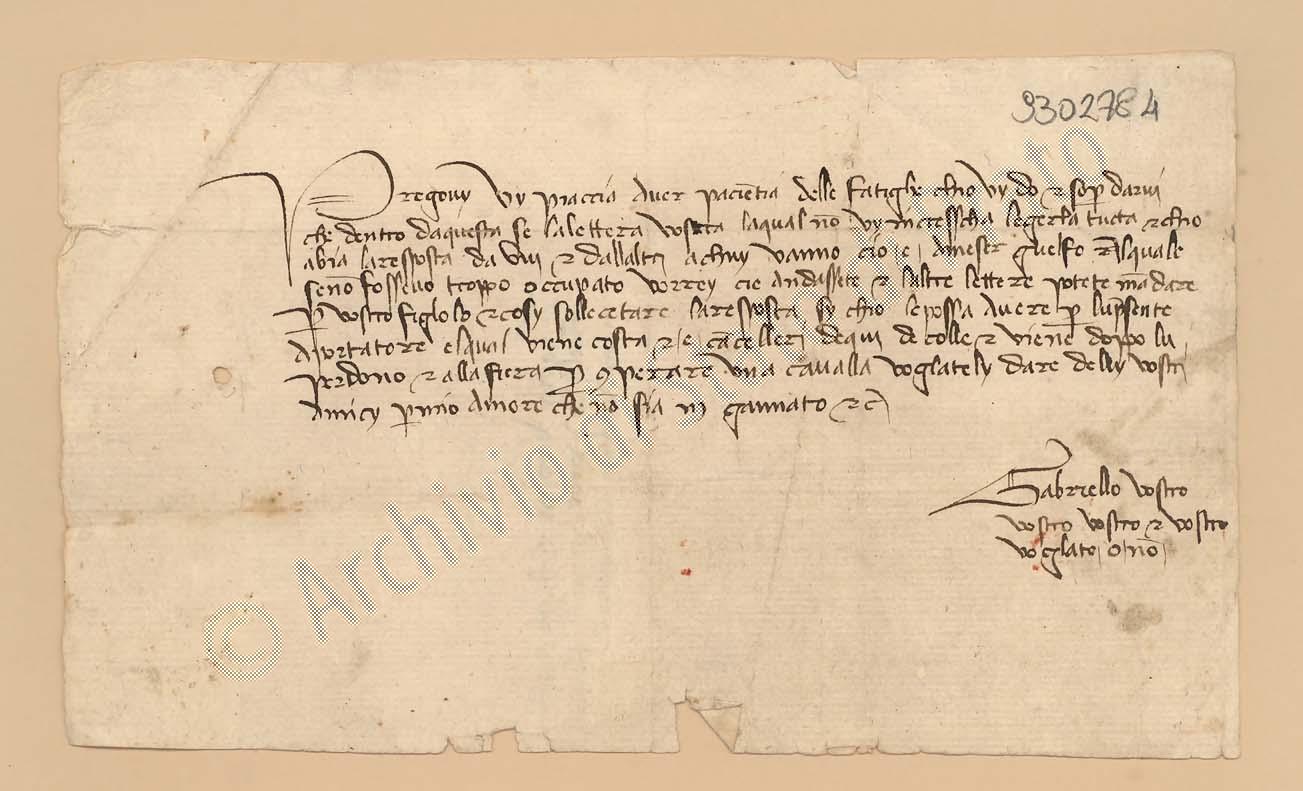 9302784
Pregovy vy piaccia aver paciētia delle fatighe chio vy do & sop darvi
che dentro daquesta se la lettera vostra laqual nō vy increscha legerla tucta & chio
abia laresposta da vui & dallaltri achuy vanno cio e, amesr guelfo alquale
senō fossevo troppo occupato vorrey cie andassete & laltre lettere potete mādare
p vostro figlolo & cosy sollecetare laresposta sy chio le possa avere p lup̄sente
aportatore elqual viene costa & e cācellerj dequi de colle & viene doppo lu
perdono & alla fiera p comperare una cavalla voglately dare delly vostrj
amicy p mio amore che nō sia in gannato &c̄
Gabriello vostro
vostro vostro & vostro
voglato, o nō,
© Archivio di Stato di Prato